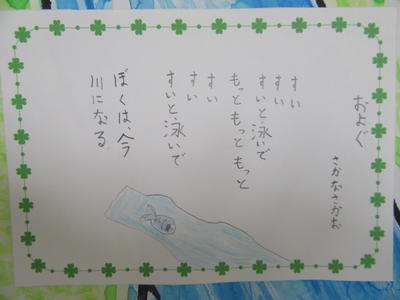 およぐ
さかなさかお
すい
すい
すいと泳いで
もっともっともっと
すい
すい
すいと泳いで
ぼくは、今
川になる